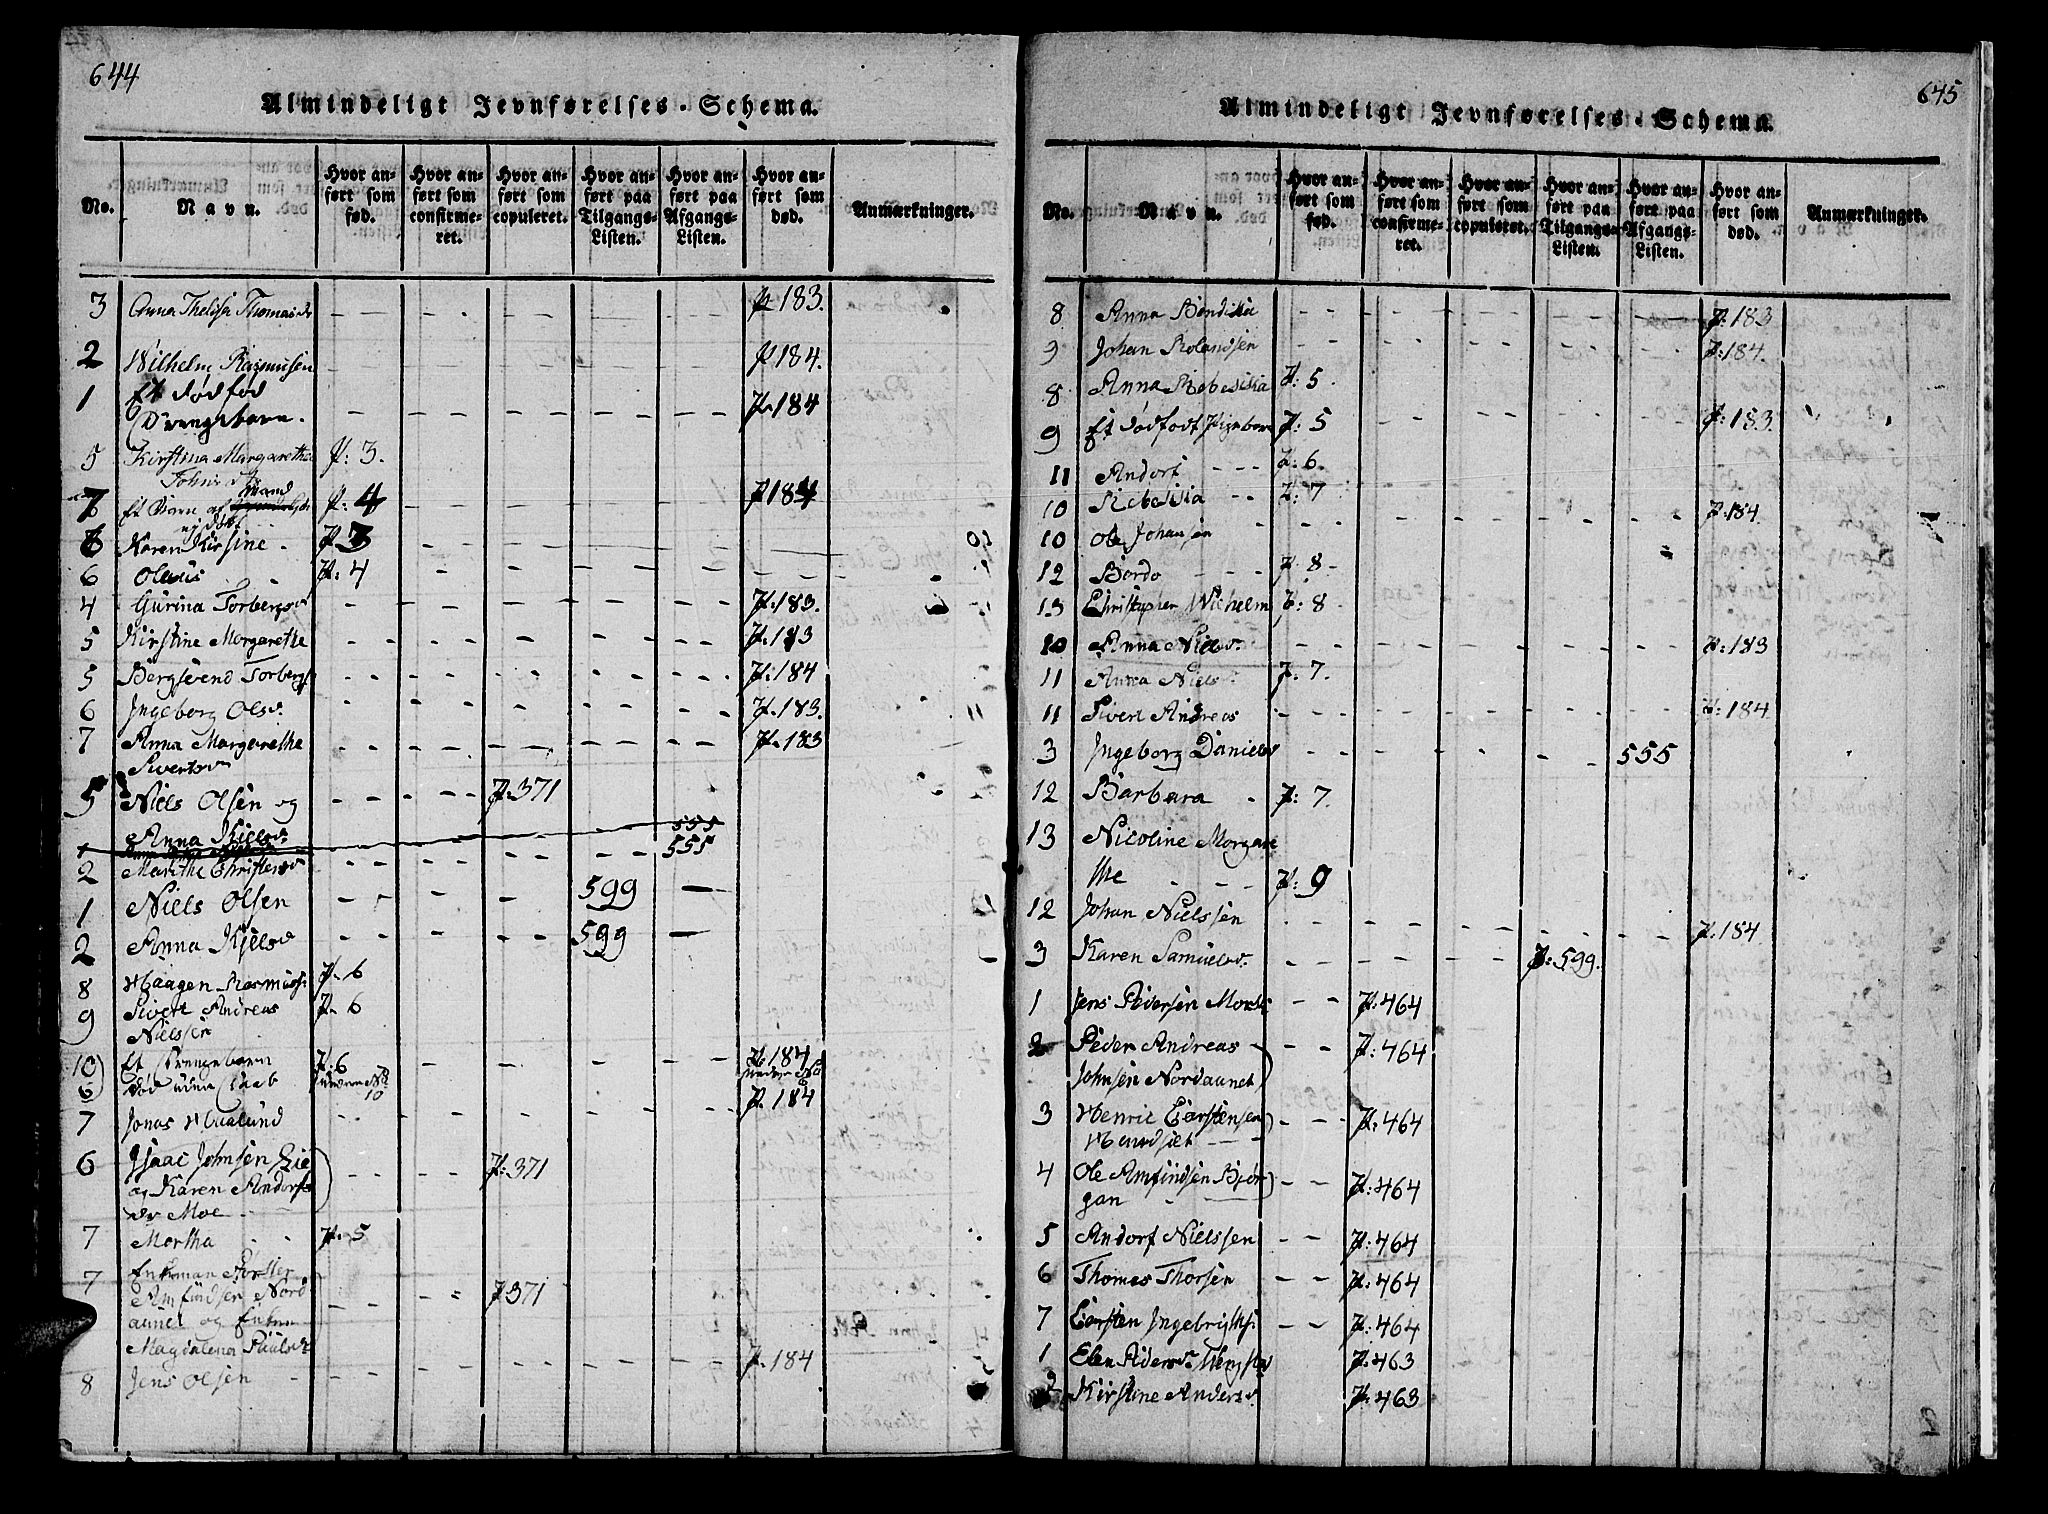 644
Almindeligt Jevnførelses-Schema.
No. Navn. Hvor anført som fød. Hvor anført som confirmeret. Hvor anført som copuleret. Hvor anført paa Tilgangs-Listen. Hvor anført paa Afgangs-Listen. Hvor anført som død. Anmærkninger.
3 Anna Thomasd P 183.
2 Wilhelm Rasmusen P 184.
1 Et dødfød
Drengebarn. P. 184
5 Kirstina Margaretha P: 3.
7 Et Barn af P: 4 P 184
Karen Kirsine P 3
6 Olaus P: 4
4 Gurina Torbergsd P. 183.
5 Kirstine Margarethe P. 183
5 Bergsvend Torbergs P. 184
6 Ingeborg Olsd. P. 183.
7 Anna Margarethe P. 183
Sivertsd
5 Niels Olsen og P. 371
Anna Kielsd. 555
2 Marithe Christensd 555
1 Niels Olsen 599
2 Anna Kjelsd 599
8 Haagen Rasmuss: P. 6
9 Sivert Andreas P. 6
Nielssen
10) Et Drengebarn P. 6 P. 184
6) død uden Daab under No 10 under No 6
P. 184
7 Jonas Haalund
6 Isaac Johnsen Lie P: 371
og Karen Andorfs
dr Moe
7 Martha P. 5
7 Enkeman Peter
Amfindsen Nord P. 371
aunet og Enken
Magdalena Paulsdr
P. 184
8 Jens Olsen
645
Almindeligt Jevnførelses-Schema.
No. Navn. Hvor anført som fød. Hvor anført som confirmeret. Hvor anført som copuleret. Hvor anført paa Tilgangs-Listen. Hvor anført paa Afgangs-Listen. Hvor anført som død. Anmærkninger.
8 Anna Bendicta P. 183
9 Johan Rolandsen P: 184.
8 Anna Rebecka P: 5.
9 Et dødfødt Pigebarn P: 5 P. 183.
11 Andorf P: 6.
10 Rebecka P: 7
10 Ole Johansen P. 184.
12 Bordo P: 8
13 Christopher Wilhelm P: 8
10 Anna Nielsd. P: 183
11 Anna Niels P: 7.
11 Sivert Andreas P: 184
3 Ingeborg Danielsd 555
12 Barbara P: 7.
13 Nicoline Margare
the P: 9
12 Johan Nielssen P: 184
3 Karen Samuelsd. P: 599.
1 Jens Pedersen P: 464
2 Peder Andreas P: 464
Johnsen Nordaunet
3 Henric Carstensen P. 464
4 Ole Amfindsen Bjør P: 464
gan
5 Andorf Nielssen P: 464
6 Thomas Thorsen P: 464
7 Carsten Ingebrigts: P: 464
1 Elen P: 463
2 Kirstine Andersd. P. 463